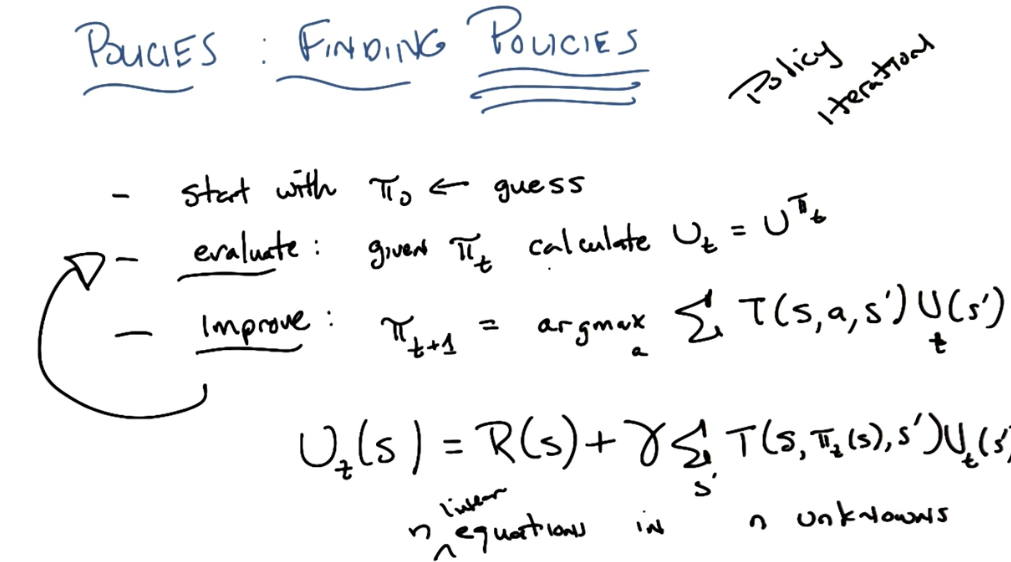 POLICIES : FINDING POLICIES
Policy
Iteration
- start with π₀ ← guess
- evaluate : given π_t calculate U_t = U^π_t
- improve : π_t+1 = argmax_a Σ T(s,a,s') U_t(s')
U_t(s) = R(s) + γ Σ_s' T(s,π_t(s),s') U_t(s'
n linear equations in n unknowns